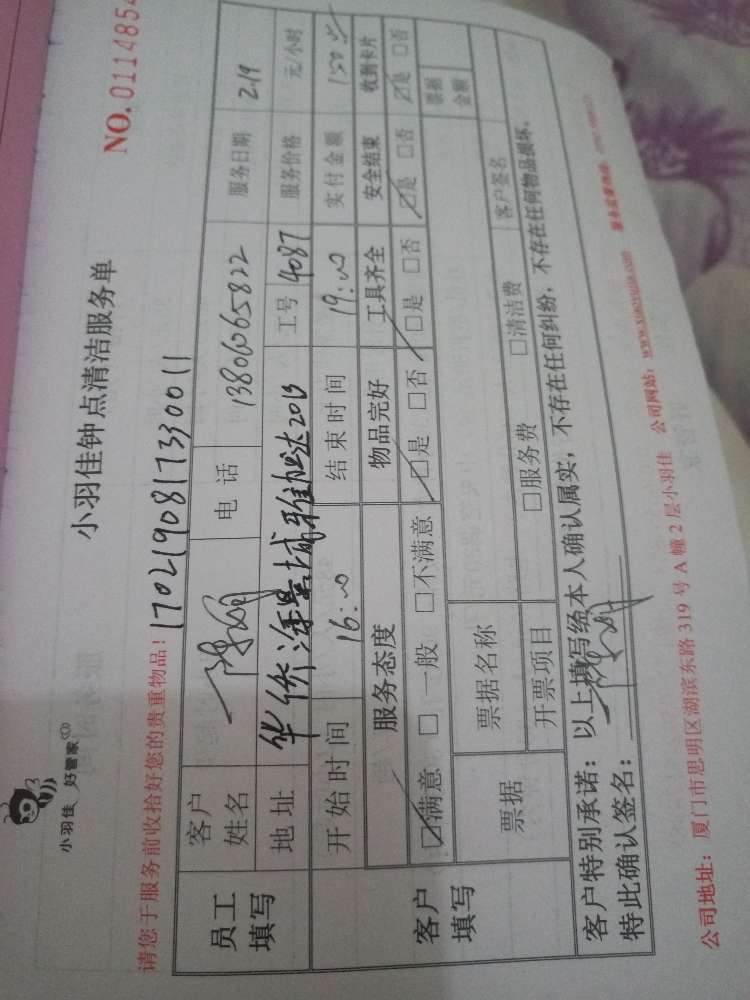 小羽佳 好管家
小羽佳钟点清洁服务单
NO.0114854
请您于服务前收拾好您的贵重物品!
1702190817330011
员工填写
客户姓名
电话 13806065822
服务日期 2.19
地址
工号 4087
服务价格 元/小时
开始时间 16:00
结束时间 19:00
实付金额 150
客户填写
服务态度 物品完好 工具齐全 安全结束 收到卡片
☑满意 □一般 □不满意 ☑是 □否 ☑是 □否 ☑是 □否 ☑是 □否
票据
票据名称
票据金额
开票项目 □服务费 □清洁费
客户签名
客户特别承诺:以上填写经本人确认属实,不存在任何纠纷,不存在任何物品损坏。
特此确认签名:
公司地址:厦门市思明区湖滨东路319号A幢2层小羽佳 公司网站:www.xiaoyujia.com